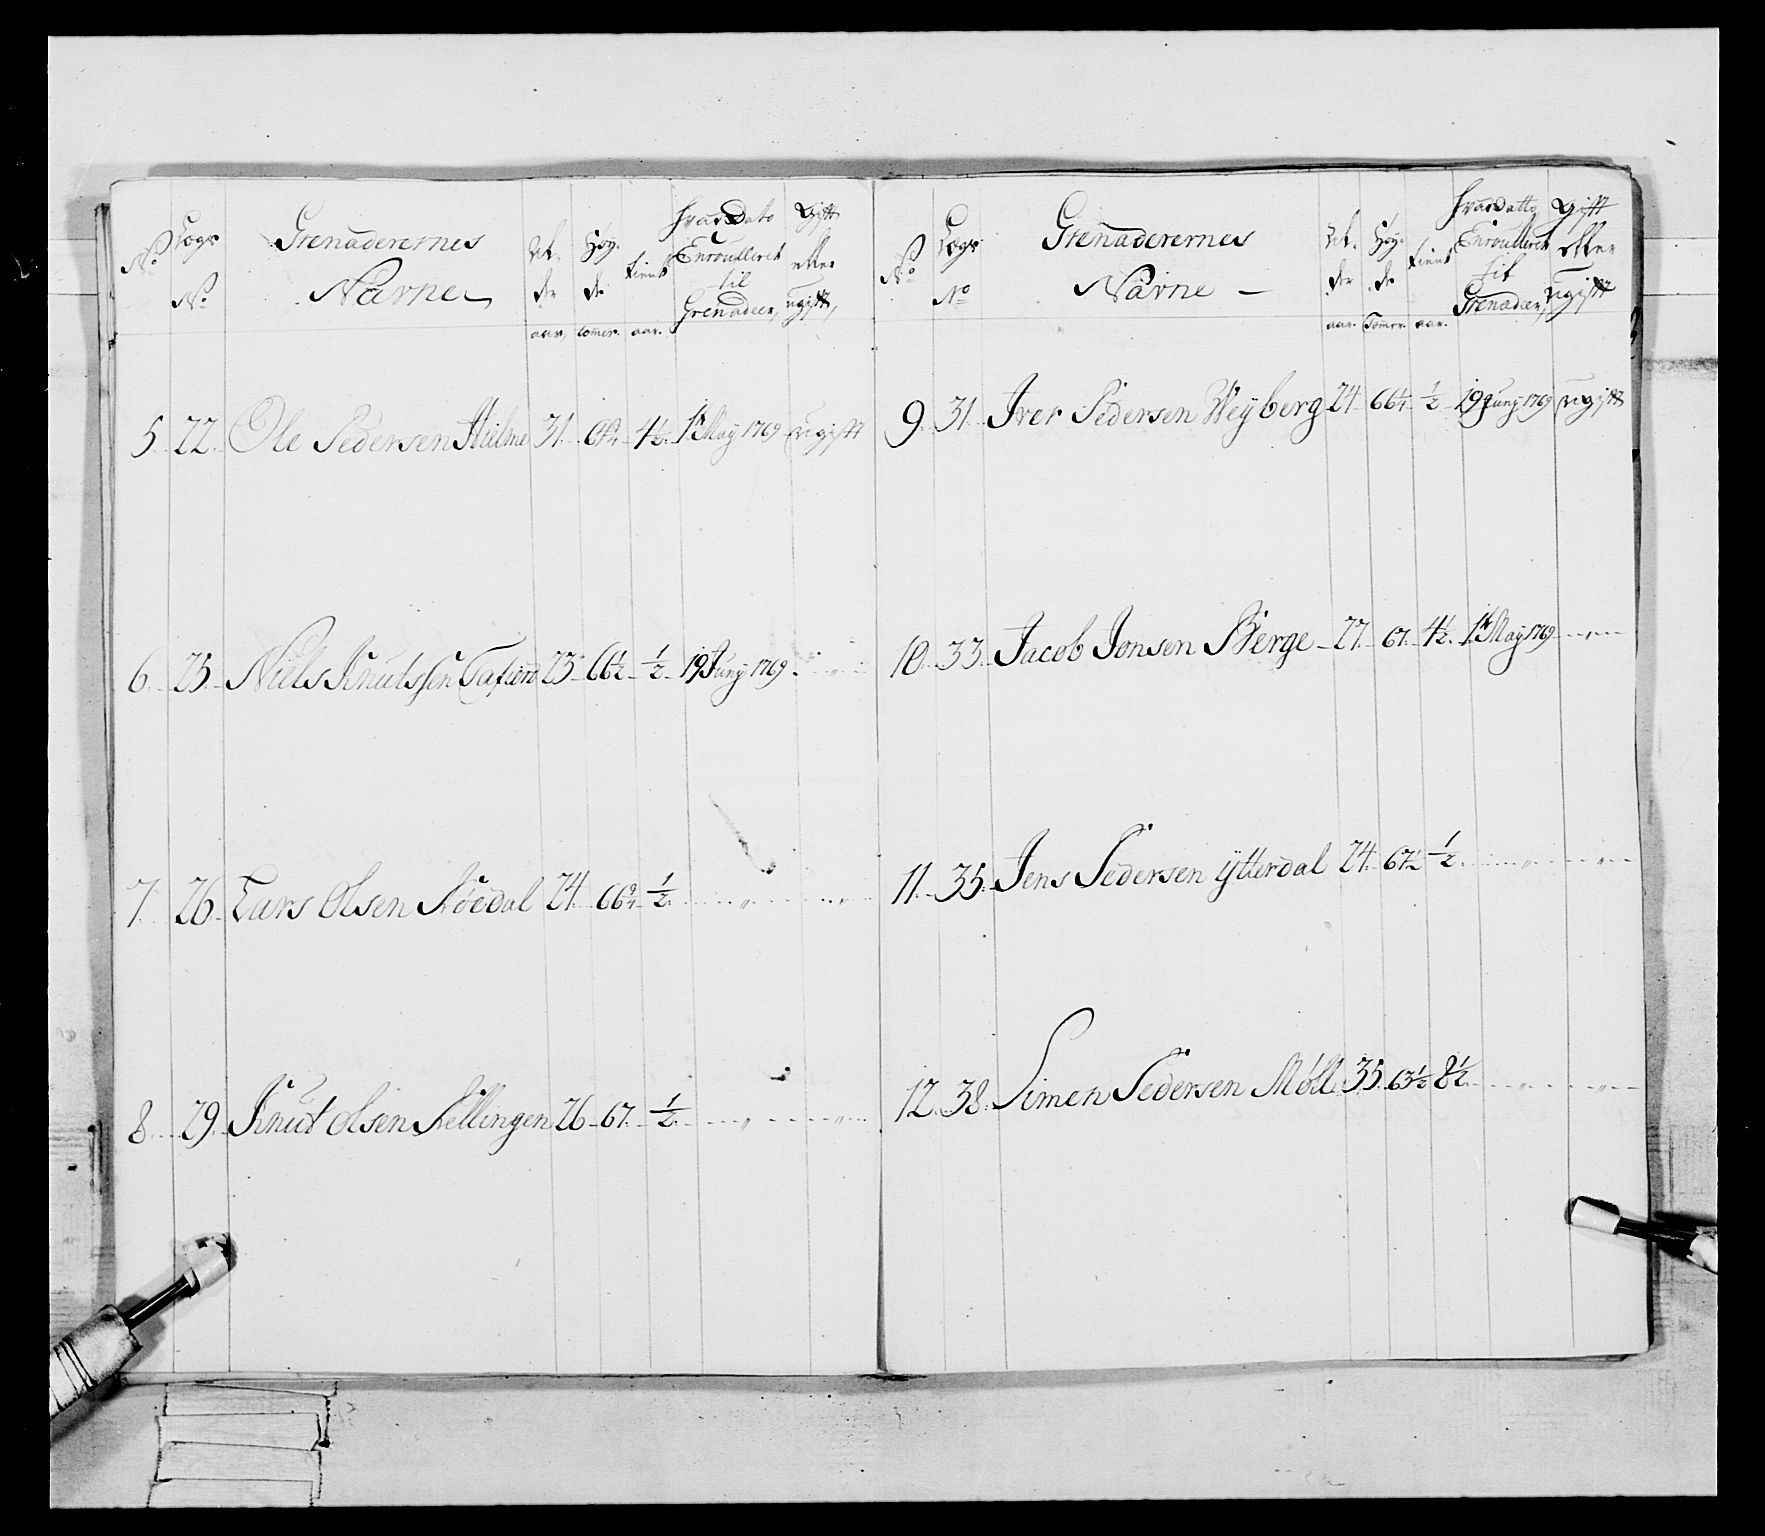 No Lægs No Grenaderernes Navne Al- der aar, Høy- de tomer. tient aar. hvad Dato Enroulleret til Grenadeer, Gift eller ugift,
5. 22. Ole Pedersen Hielme 31. 4½. 1te May 1769 ugift
6. 25. Niels Knutssen Tafiord 25. 66½ ½. 19 Juny 1769. „
7. 26. Lars Olsen 24. 66¾ ½. „ „
8. 29. Knut Olsen Kellingen 26. 67. ½. „ „
No Lægs No Grenaderernes Navne Al- der aar. Høy- de Tomer. tient aar. hvad Datto Enroulleret til Grenadeer, Gift eller ugift
9. 31. Iver Pedersen Weyberg 24 66¼ ½ 19 Juny 1769 ugift
10. 33. Jacob Jonsen Berge 27. 67. 4½. 1te May 1769 „
11. 35. Jens Pedersen Ytterdal 24. 67½ ½. „ „
12. 38. Simen Pedersen Møll 35. 63½ 8½. „ „